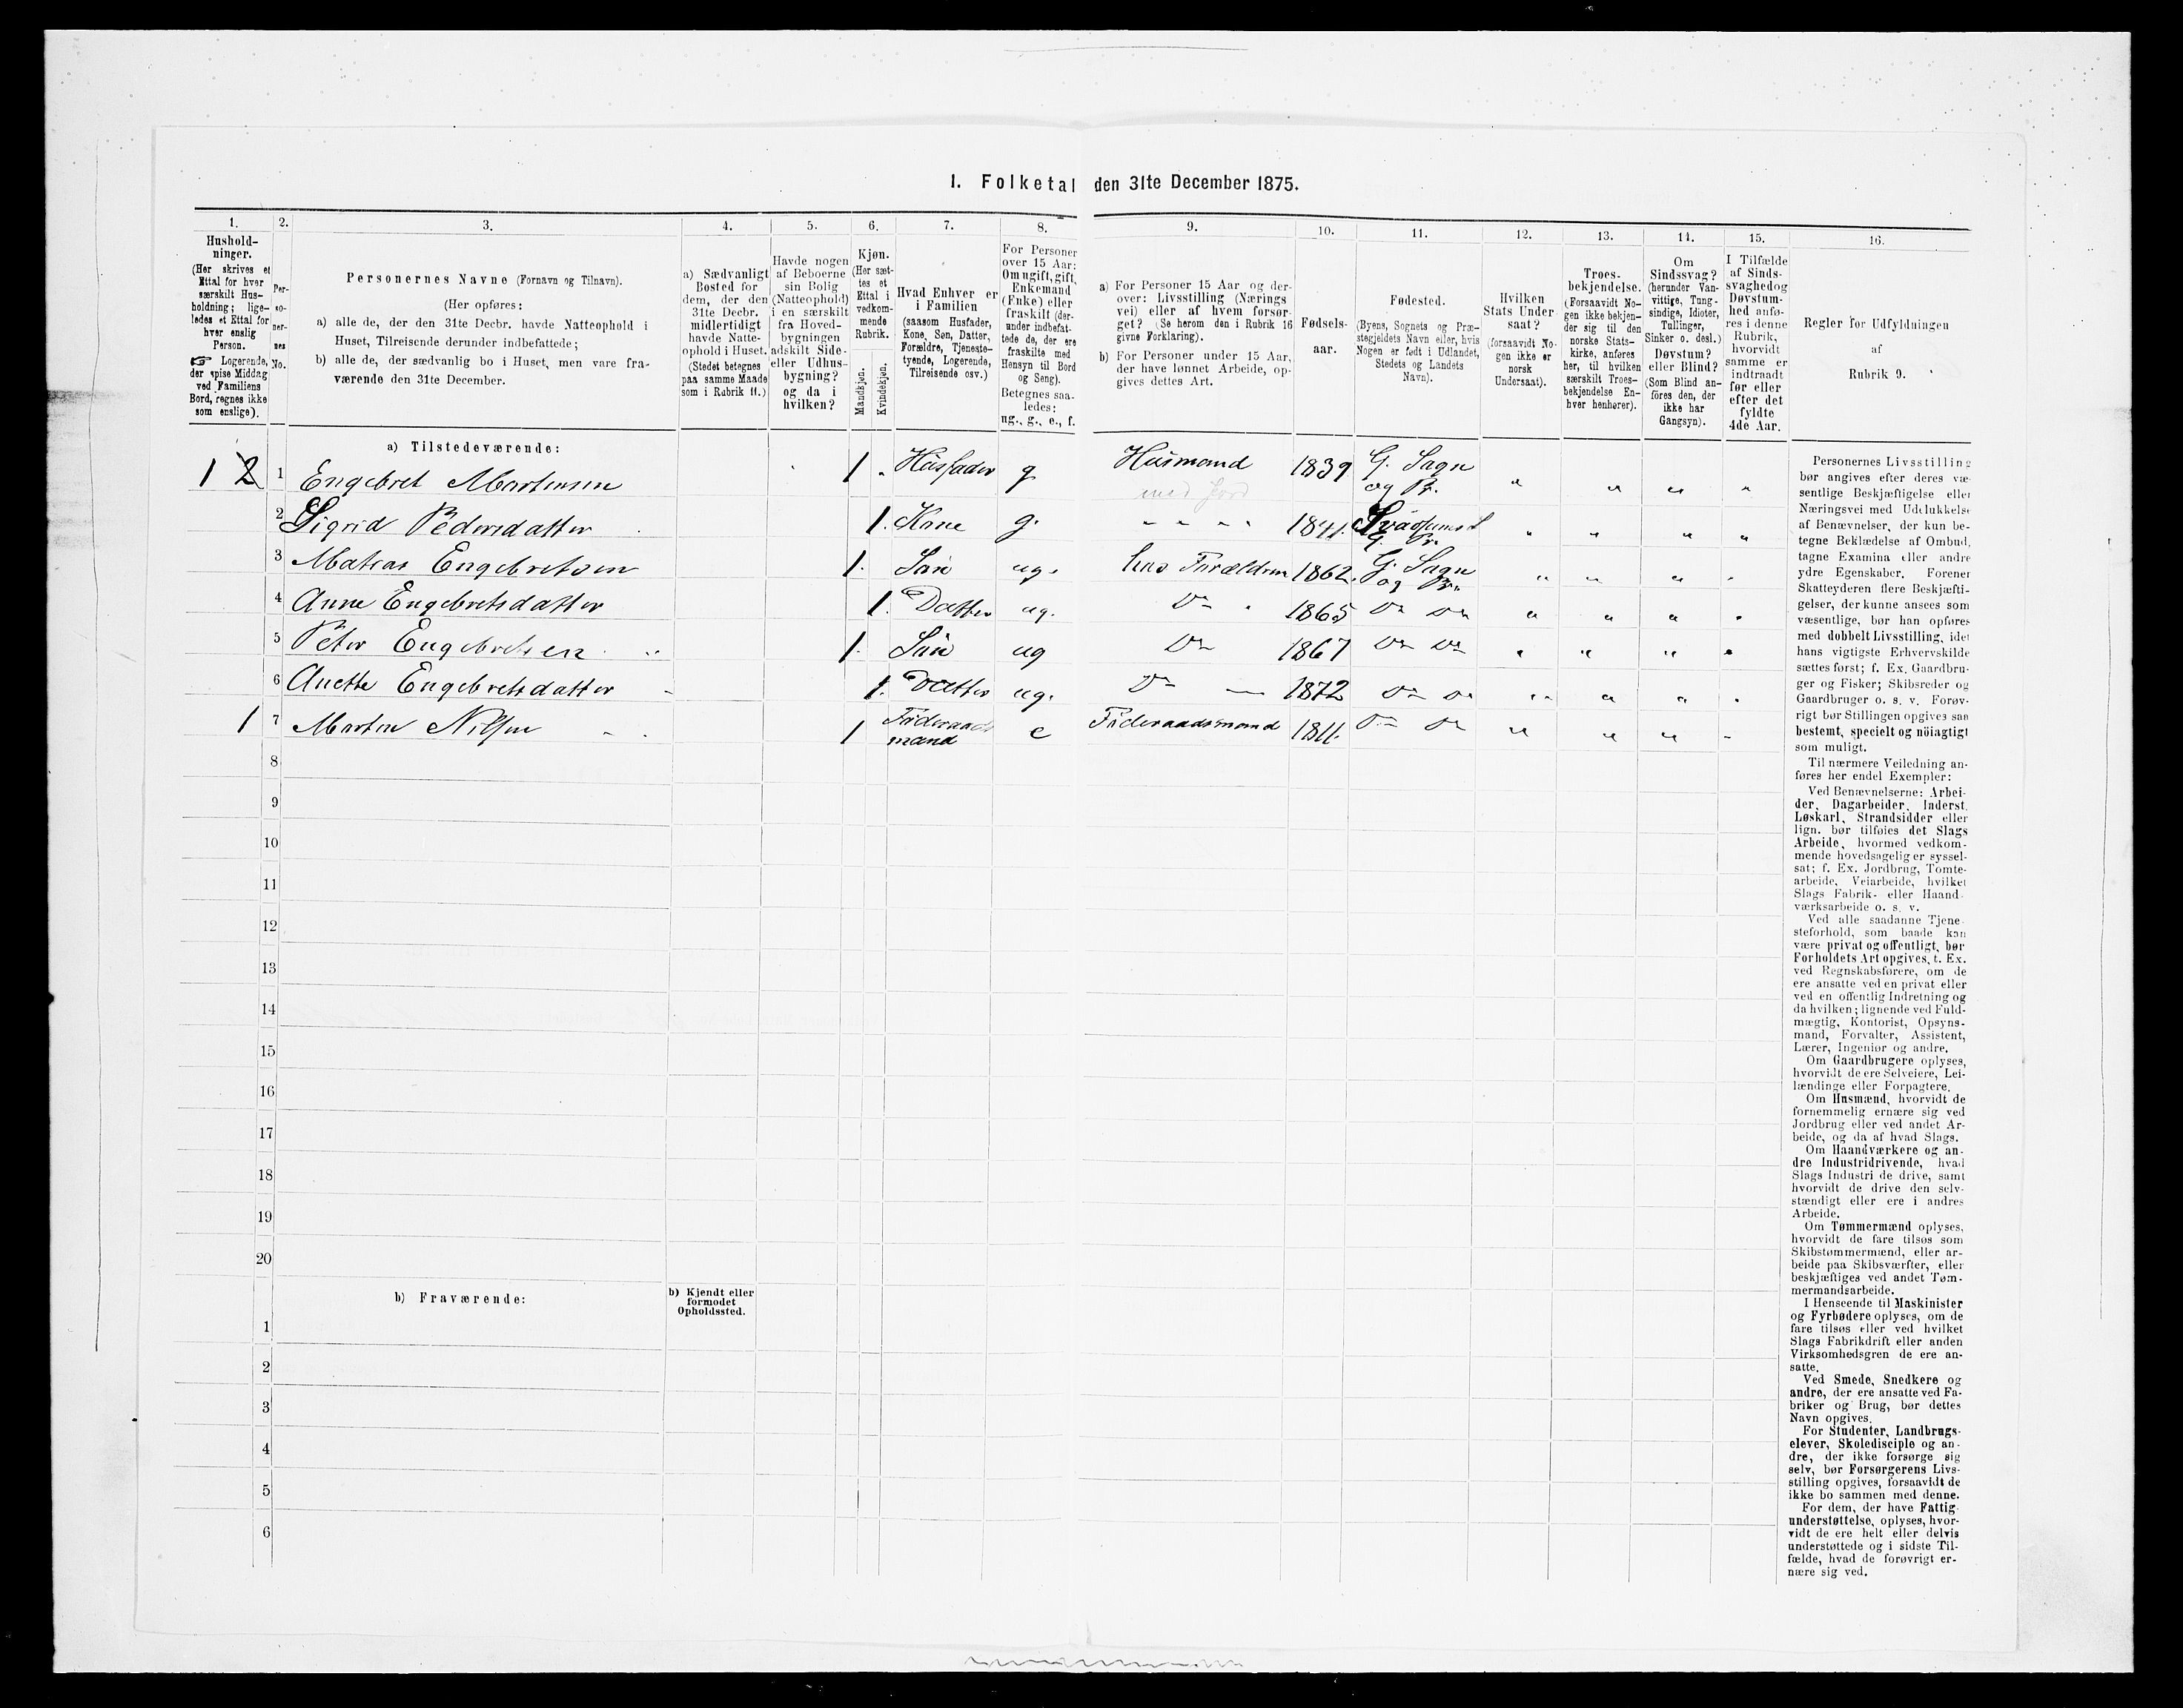 1. Folketal den 31te December 1875.
1.
Hushold-
ninger.
(Her skrives et
Ettal for hver
særskilt Hus-
holdning; lige-
ledes et Ettal for
hver enslig
Person.
☞ Logerende,
der spise Middag
ved Familiens
Bord, regnes ikke
som enslige).
2.
Per-
so-
ner-
nes
No.
3.
Personernes Navne (Fornavn og Tilnavn).
(Her opføres:
a) alle de, der den 31te Decbr. havde Natteophold i
Huset, Tilreisende derunder indbefattede;
b) alle de, der sædvanlig bo i Huset, men vare fra-
værende den 31te December.
4.
a) Sædvanligt
Bosted for
dem, der den
31te Decbr.
midlertidigt
havde Natte-
ophold i Huset.
(Stedet betegnes
paa samme Maade
som i Rubrik 11.)
5.
Havde nogen
af Beboerne
sin Bolig
(Natteophold)
i en særskilt
fra Hoved-
bygningen
adskilt Side-
eller Udhus-
bygning?
og da i
hvilken?
6.
Kjøn.
(Her sæt-
tes et
Ettal i
vedkom-
mende
Rubrik.
Mandkjøn.
Kvindekjøn.
7.
Hvad Enhver er
i Familien
(saasom Husfader,
Kone, Søn, Datter,
Forældre, Tjeneste-
tyende, Logerende,
Tilreisende osv.)
8.
For Personer
over 15 Aar:
Om ugift, gift,
Enkemand
(Enke) eller
fraskilt (der-
under indbefat-
tede de, der ere
fraskilte med
Hensyn til Bord
og Seng).
Betegnes saa-
ledes:
ug., g., e., f.
9.
a) For Personer 15 Aar og der-
over: Livsstilling (Nærings
vei) eller af hvem forsør-
get? (Se herom den i Rubrik 16
givne Forklaring).
b) For Personer under 15 Aar,
der have lønnet Arbeide, op-
gives dettes Art.
10.
Fødsels-
aar.
11.
Fødested.
(Byens, Sognets og Præ-
stegjeldets Navn eller, hvis
Nogen er født i Udlandet,
Stedets og Landets
Navn).
12.
Hvilken
Stats Under
saat?
(forsaavidt No-
gen ikke er
norsk
Undersaat).
13.
Troes-
bekjendelse.
(Forsaavidt No-
gen ikke bekjen-
der sig til den
norske Stats-
kirke, anføres
her, til hvilken
særskilt Troes-
bekjendelse En-
hver henhører).
14.
Om
Sindssvag?
(herunder Van-
vittige, Tung-
sindige, Idioter,
Tullinger,
Sinker o. desl.)
Døvstum?
eller Blind?
(Som Blind an-
føres den, der
ikke har
Gangsyn).
15.
I Tilfælde
af Sinds-
svaghed og
Døvstum-
hed anfø-
res i denne
Rubrik,
hvorvidt
samme er
indtraadt
før eller
efter det
fyldte
4de Aar.
16.
Regler for Udfyldningen
af
Rubrik 9.
a) Tilstedeværende:
1 2 1 Engebret Martensen 1 " Husfader g Husmand med Jord 1839 G. Sogn og Pr. " " " "
2 Sigrid Pedersdatter 1. Kone g. " " " " 1841. G. Pr. " " " "
3 Matias Engebretsen 1. Søn ug. hos Forældren 1862. G. Sogn og Pr. " " " "
4 Anne Engebretsdatter 1. Datter ug. Do 1865 Do Do " " " "
5 Peter Engebretsen 1. Søn ug Do 1867 Do Do " " " "
6 Anette Engebretsdatter 1. Datter ug. Do 1872 Do Do " " " "
1 7 Marten Nilsen 1 Föderaads mand e Föderaadsmand 1811. Do Do " " " "
8
9
10
11
12
13
14
15
16
17
18
19
20
b) Fraværende:
b) Kjendt eller
formodet
Opholdssted.
1
2
3
4
5
6
Personernes Livsstilling
bør angives efter deres væ-
sentlige Beskjæftigelse eller
Næringsvei med Udelukkelse
af Benævnelser, der kun be-
tegne Beklædelse af Ombud,
tagne Examina eller andre
ydre Egenskaber. Forener
Skatteyderen flere Beskjæfti-
gelser, der kunne ansees som
væsentlige, bør han opføres
med dobbelt Livsstilling, idet
hans vigtigste Erhvervskilde
sættes først; f. Ex. Gaardbru-
ger og Fisker; Skibsreder og
Gaardbruger o. s. v. Forøv-
rigt bør Stillingen opgives saa
bestemt, specielt og nöiagtigt
som muligt.
Til nærmere Veiledning an-
føres her endel Exempler:
Ved Benævnelserne: Arbei-
der, Dagarbeider, Inderst,
Løskarl, Strandsidder eller
lign. bør tilføies det Slags
Arbeide, hvormed vedkom-
mende hovedsagelig er syssel-
sat; f. Ex. Jordbrug, Tomte-
arbeide, Veiarbeide, hvilket
Slags Fabrik- eller Haand-
værksarbeide o. s. v.
Ved alle saadanne Tjene-
steforhold, som baade kan
være privat og offentligt, bør
Forholdets Art opgives, t. Ex.
ved Regnskabsførere, om de
ere ansatte ved en privat eller
ved en offentlig Indretning og
da hvilken; lignende ved Fuld-
mægtig, Kontorist, Opsyns-
mand, Forvalter, Assistent,
Lærer, Ingeniør og andre.
Om Gaardbrugere oplyses,
hvorvidt de ere Selveiere, Lei-
lændinge eller Forpagtere.
Om Husmænd, hvorvidt de
fornemmelig ernære sig ved
Jordbrug eller ved andet Ar-
beide, og da af hvad Slags.
Om Haandværkere og an-
dre Industridrivende, hvad
Slags Industri de drive, samt
hvorvidt de drive den selv-
stændigt eller ere i andres
Arbeide.
Om Tømmermænd oplyses,
hvorvidt de fare tilsøs som
Skibstømmermænd, eller ar-
beide paa Skibsværfter, eller
beskjæftiges ved andet Tøm-
mermandsarbeide.
I Henseende til Maskinister
og Fyrbødere oplyses, om de
fare tilsøs eller ved hvilket
Slags Fabrikdrift eller anden
Virksomhedsgren de ere an-
satte.
Ved Smede, Snedkere og
andre, der ere ansatte ved Fa-
briker og Brug, bør dettes
Navn opgives.
For Studenter, Landbrugs-
elever, Skoledisciple og an-
dre, der ikke forsørge sig
selv, bør Forsørgerens Livs-
stilling opgives, forsaavidt de
ikke bo sammen med denne.
For dem, der have Fattig-
understøttelse, oplyses, hvor-
vidt de ere helt eller delvis
understøttede og i sidste Til-
fælde, hvad de forøvrigt er-
nære sig ved.